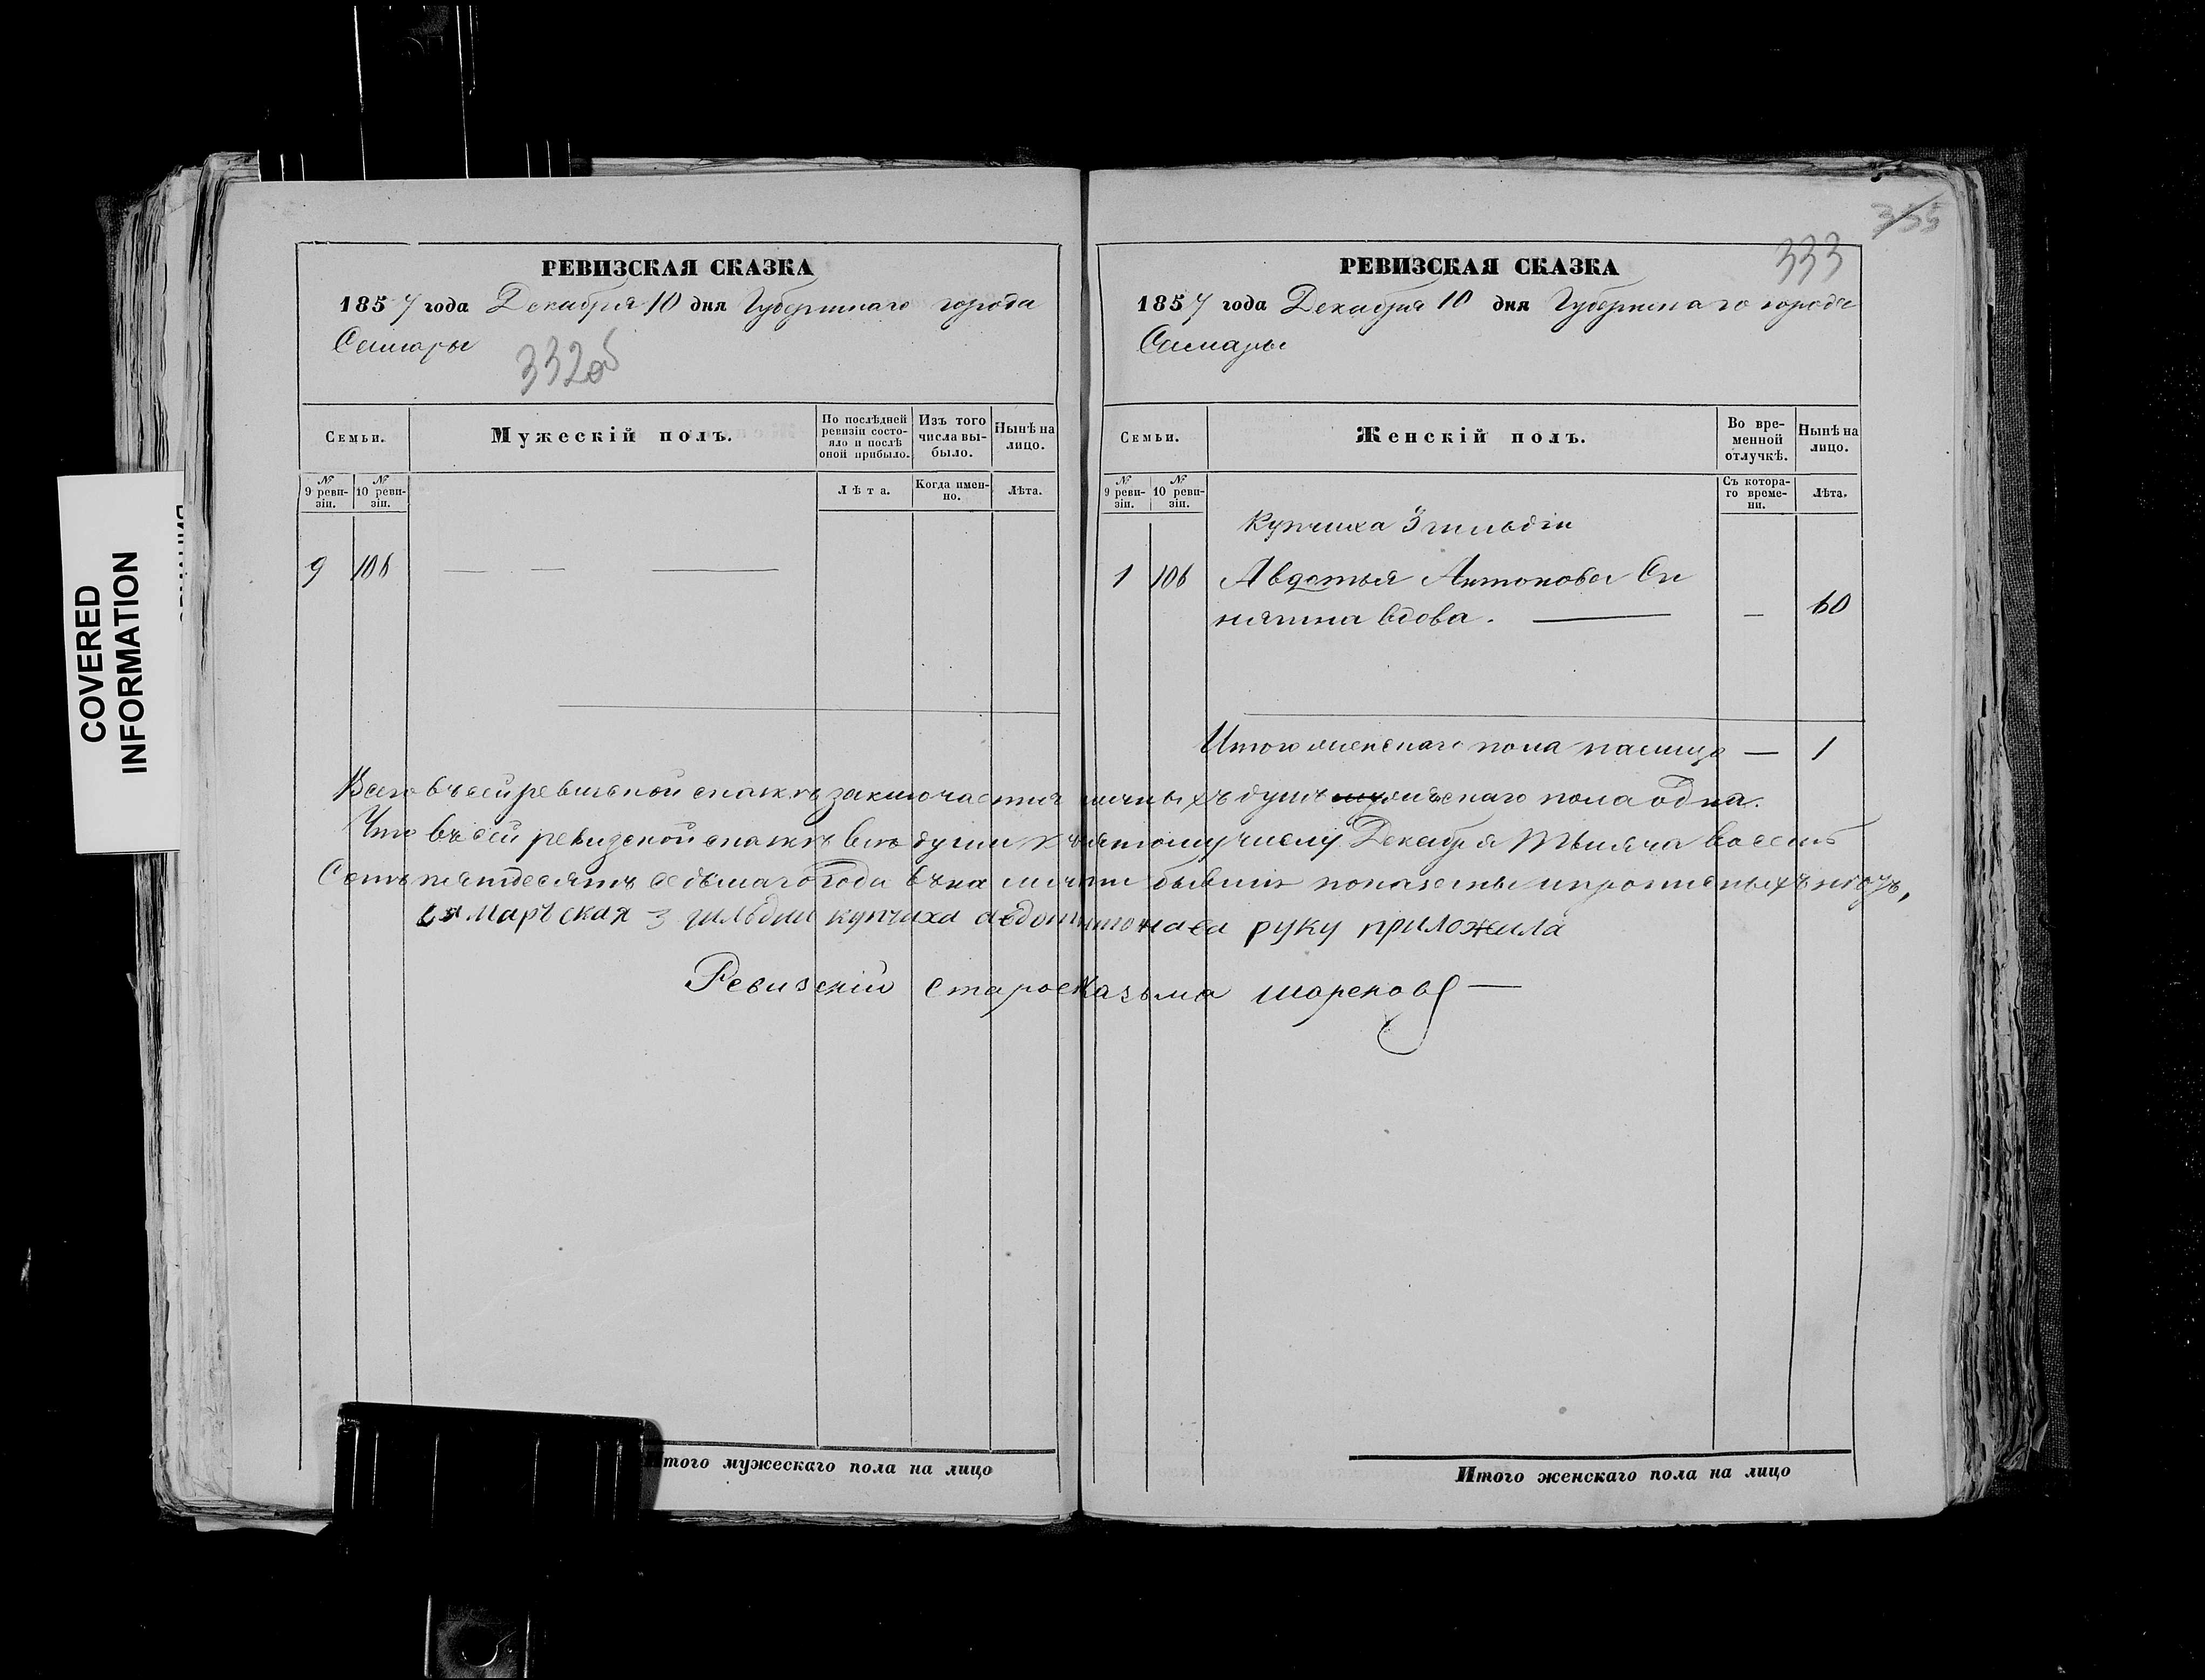 COVERED
INFORMATION
РЕВИЗСКАЯ СКАЗКА
1857 года Декабря 10 дня Губернскаго города
Самары
332об
Семьи.
Мужескій полъ.
По послѣдней ревизіи состо-яло и послѣ оной прибыло.
Изъ того числа вы-было.
Нынѣ на лицо.
№ 9 реви-зіи.
№ 10 реви-зіи.
Лѣта.
Когда имен-но.
Лѣта.
9 106 — — —
Итого мужескаго пола на лицо
355
333
РЕВИЗСКАЯ СКАЗКА
1857 года Декабря 10 дня Губернскаго города
Самары
Семьи.
Женскій полъ.
Во вре-менной отлучкѣ.
Нынѣ на лицо.
№ 9 реви-зіи.
№ 10 реви-зіи.
Съ котора-го време-ни.
Лѣта.
Купчиха 3 гильдіи
1 106 Авдотья Антонова
вдова. — — 60
Итого женскаго пола налицо — 1
Всего въ сей ревизской сказкѣ заключается личныхъ душъ женскаго пола одна.
Что въ сей ревизской сказкѣ всѣ души къ Декабря тысяча восемь
Сотъ пятдесятъ седьмаго года въ на личи бывши показаны и прописныхъ нѣтъ,
самарьская 3 гильдии купчиха авдот нтонава руку приложила
Ревизскій Старос Казьма шореновъ —
Итого женскаго пола на лицо